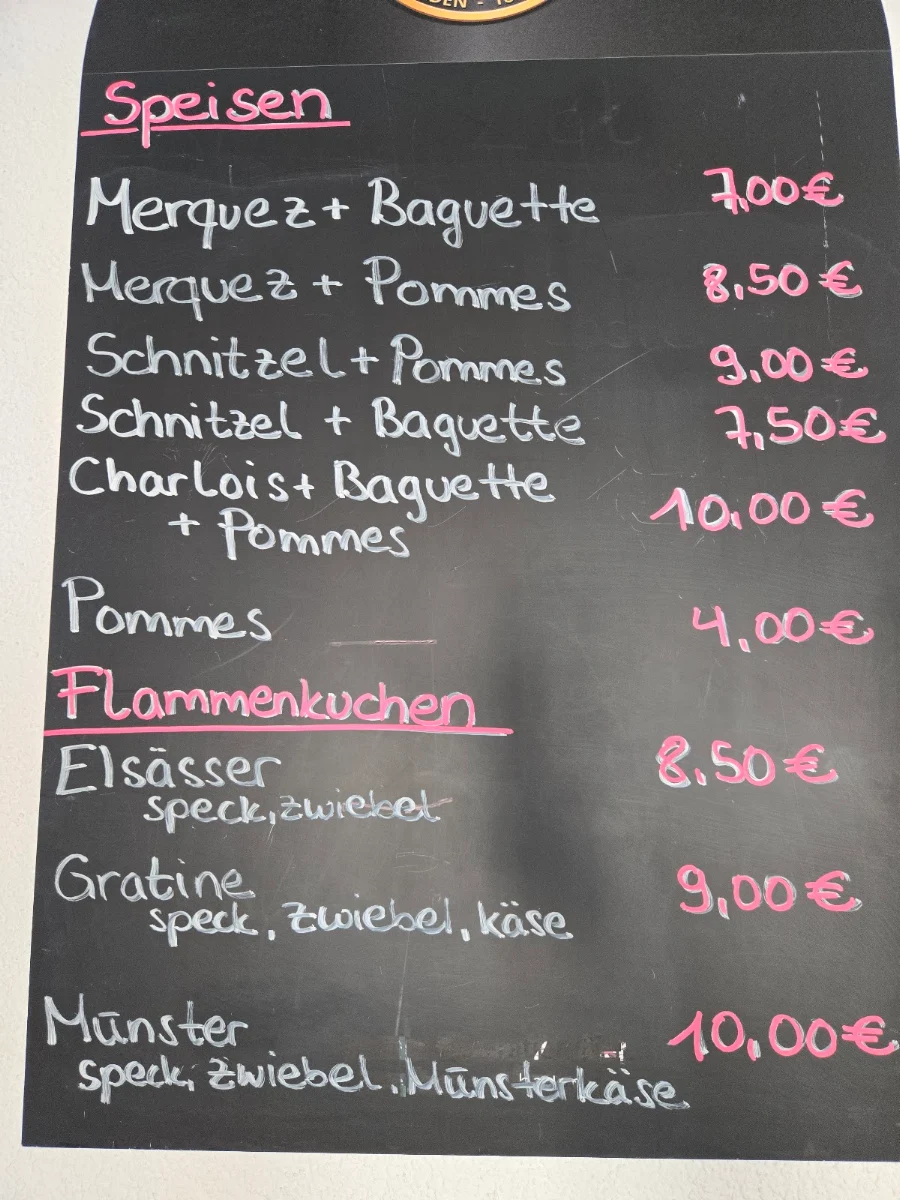 Speisen
Merquez + Baguette 7,00 €
Merquez + Pommes 8,50 €
Schnitzel + Pommes 9,00 €
Schnitzel + Baguette 7,50 €
Charlois + Baguette
+ Pommes 10,00 €
Pommes 4,00 €
Flammenkuchen
Elsässer 8,50 €
speck, zwiebel
Gratine 9,00 €
speck, zwiebel, käse
Münster 10,00 €
speck, zwiebel, Münsterkäse